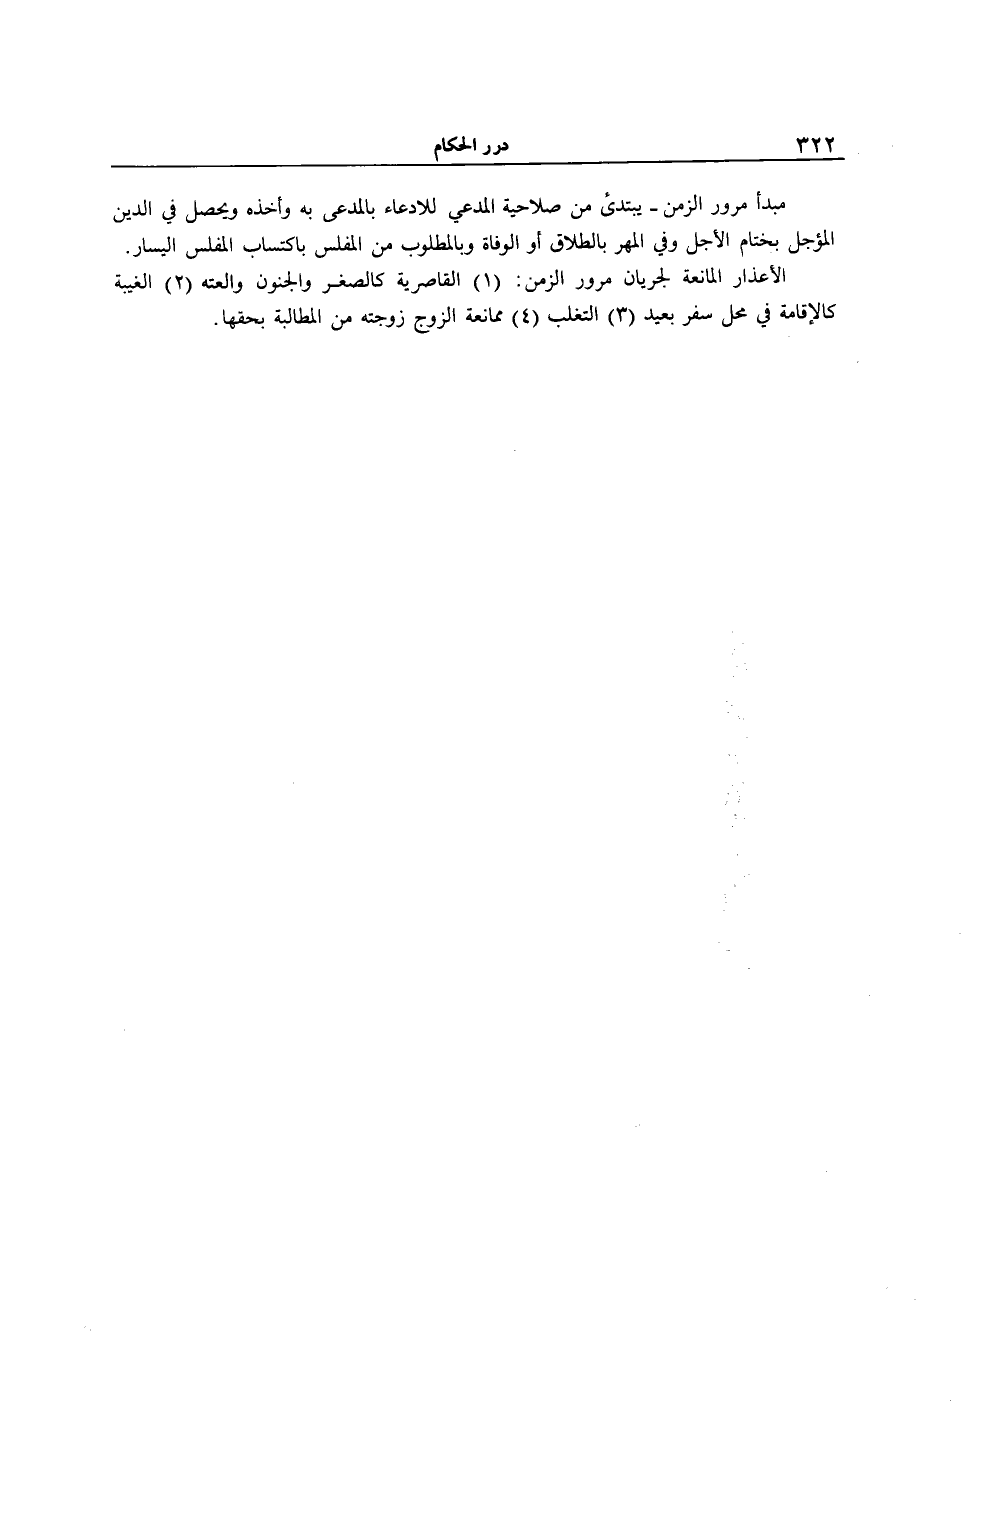 ٣٢٢ درر الحكام
مبدأ مرور الزمن ـ يبتدئ من صلاحية المدعي للادعاء بالمدعى به وأخذه ويحصل في الدين
المؤجل بختام الأجل وفي المهر بالطلاق أو الوفاة وبالمطلوب من المفلس باكتساب المفلس اليسار.
الأعذار المانعة لجريان مرور الزمن: (١) القاصرية كالصغر والجنون والعته (٢) الغيبة
كالإقامة في محل سفر بعيد (٣) التغلب (٤) ممانعة الزوج زوجته من المطالبة بحقها.